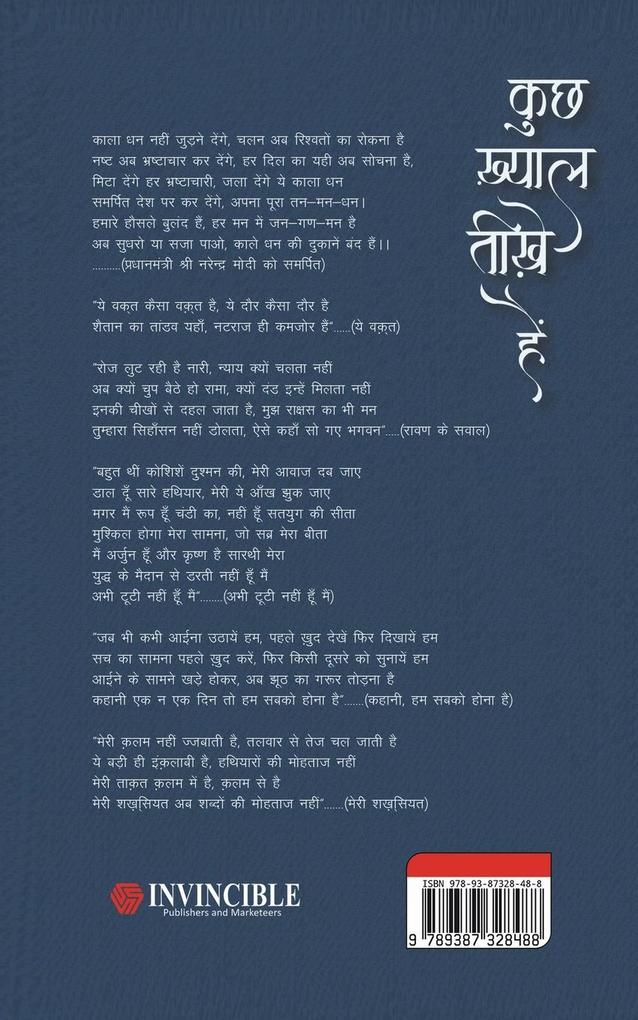 कुछ
ख़्याल
तीख़े
हैं
काला धन नहीं जुड़ने देंगे, चलन अब रिश्वतों का रोकना है
नष्ट अब भ्रष्टाचार कर देंगे, हर दिल का यही अब सोचना है,
मिटा देंगे हर भ्रष्टाचारी, जला देंगे ये काला धन
समर्पित देश पर कर देंगे, अपना पूरा तन–मन–धन।
हमारे हौसले बुलंद हैं, हर मन में जन–गण–मन है
अब सुधरो या सजा पाओ, काले धन की दुकानें बंद हैं।।
..........(प्रधानमंत्री श्री नरेन्द्र मोदी को समर्पित)
"ये वक़्त कैसा वक़्त है, ये दौर कैसा दौर है
शैतान का तांडव यहाँ, नटराज ही कमजोर हैं"......(ये वक़्त)
"रोज लुट रही है नारी, न्याय क्यों चलता नहीं
अब क्यों चुप बैठे हो रामा, क्यों दंड इन्हें मिलता नहीं
इनकी चीखों से दहल जाता है, मुझ राक्षस का भी मन
तुम्हारा सिहाँसन नहीं डोलता, ऐसे कहाँ सो गए भगवन".....(रावण के सवाल)
"बहुत थीं कोशिशें दुश्मन की, मेरी आवाज दब जाए
डाल दूँ सारे हथियार, मेरी ये आँख झुक जाए
मगर मैं रूप हूँ चंडी का, नहीं हूँ सतयुग की सीता
मुश्किल होगा मेरा सामना, जो सब्र मेरा बीता
मैं अर्जुन हूँ और कृष्ण है सारथी मेरा
युद्ध के मैदान से डरती नहीं हूँ मैं
अभी टूटी नहीं हूँ मैं"........(अभी टूटी नहीं हूँ मैं)
"जब भी कभी आईना उठायें हम, पहले ख़ुद देखें फिर दिखायें हम
सच का सामना पहले ख़ुद करें, फिर किसी दूसरे को सुनायें हम
आईने के सामने खड़े होकर, अब झूठ का गरूर तोड़ना है
कहानी एक न एक दिन तो हम सबको होना है".......(कहानी, हम सबको होना है)
"मेरी क़लम नहीं ज्जबाती है, तलवार से तेज चल जाती है
ये बड़ी ही इंक़लाबी है, हथियारों की मोहताज नहीं
मेरी ताक़त क़लम में है, क़लम से है
मेरी शख़्सियत अब शब्दों की मोहताज नहीं".......(मेरी शख़्सियत)
INVINCIBLE
Publishers and Marketeers
ISBN 978-93-87328-48-8
9 789387 328488